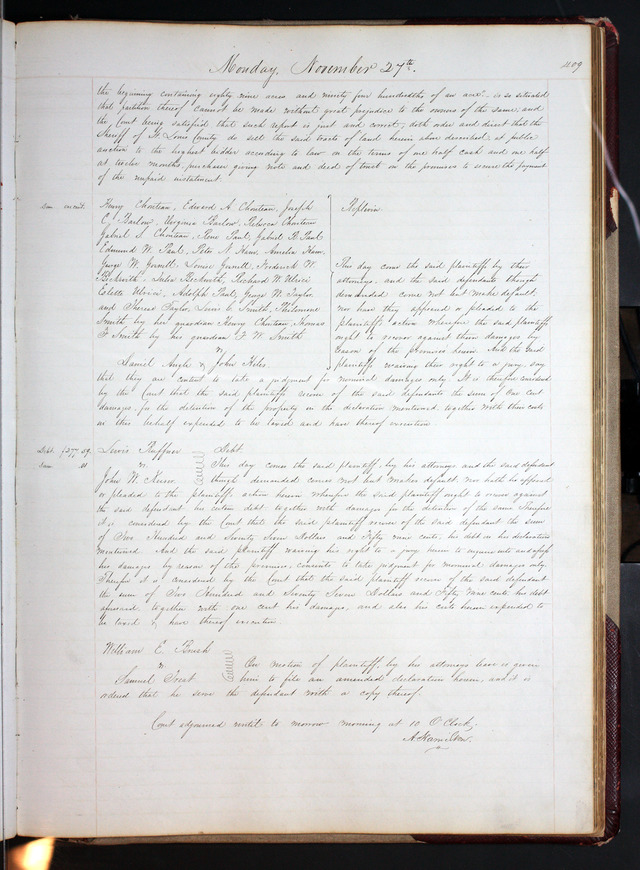 Monday, November 27th. 409
the beginning containing eighty nine acres and ninety four hundredths of an acre is so situated
that partition thereof cannot be made without great prejudice to the owners of the same, and
the Court being satisfied that such report is just and correct; doth order and direct that the
Sheriff of St Louis County do sell the said tracts of land herein above described at public
auction to the highest bidder according to law on the terms of one half cash and one half
at twelve months, purchaser giving note and deed of trust on the premises to secure the payment
of the unpaid instalment.
Dam. one cent.
Henry Chouteau, Edward A. Chouteau, Joseph
C. Barlow, Virginia Barlow, Rebecca Chouteau
Gabriel S. Chouteau, Rene Paul, Gabriel R. Paul
Edmund W. Paul, Peter N. Ham, Amelia Ham,
George W. Louise Frederick W.
Beckwith, Beckwith, Richard W. Ulrici
Estelle Ulrici, Adolph Paul, George W. Taylor,
and Theresa Taylor, Louis C. Smith, Philomene
Smith by her guardian Henry Chouteau, Thomas
F. Smith by his guardian F. W. Smith
vs
Daniel Angle & John Holes
Replevin.
This day come the said plaintiffs by their
attorneys, and the said defendants though
demanded come not but make default
nor have they appeared or pleaded to the
plaintiffs action wherefore the said plaintiffs
ought to recover against them damages by
reason of the premises herein. And the said
plaintiffs waiving their right to a jury, say
that they are content to take a judgment for nominal damages only. It is therefore considered
by the Court that the said plaintiffs recover of the said defendants the sum of One cent
damages for the detention of the property in the declaration mentioned together with their costs
in this behalf expended to be levied and have thereof execution.
Debt. $277.59.
Dam .01
Lewis Ruffner
vs.
John W.
Debt.
This day comes the said plaintiff, by his attorneys and the said defendant
though demanded comes not but makes default nor hath he appeared
or pleaded to the plaintiffs action herein wherefore the said plaintiff ought to recover against
the said defendant his certain debt together with damages for the detention of the same. Therefore
it is considered by the Court that the said plaintiff recover of the said defendant the sum
of Two Hundred and Seventy Seven Dollars and Fifty nine cents, his debt in his declaration
mentioned. And the said plaintiff waiving his right to a jury herein to enquire into and assess
his damages by reason of the premises, consents to take judgment for nominal damages only.
Therefore it is considered by the Court that the said plaintiff recover of the said defendant
the sum of Two Hundred and Seventy Seven Dollars and Fifty Nine cents his debt
aforesaid together with one cent his damages, and also his costs herein expended to
be levied & have thereof execution.
William E. Brush
vs.
Samuel Treat
On motion of plaintiff, by his attorneys leave is given
him to file an amended declaration herein, and it is
ordered that he serve the defendant with a copy thereof
Court adjourned until to morrow morning at 10 O'Clock,
A. Hamilton.